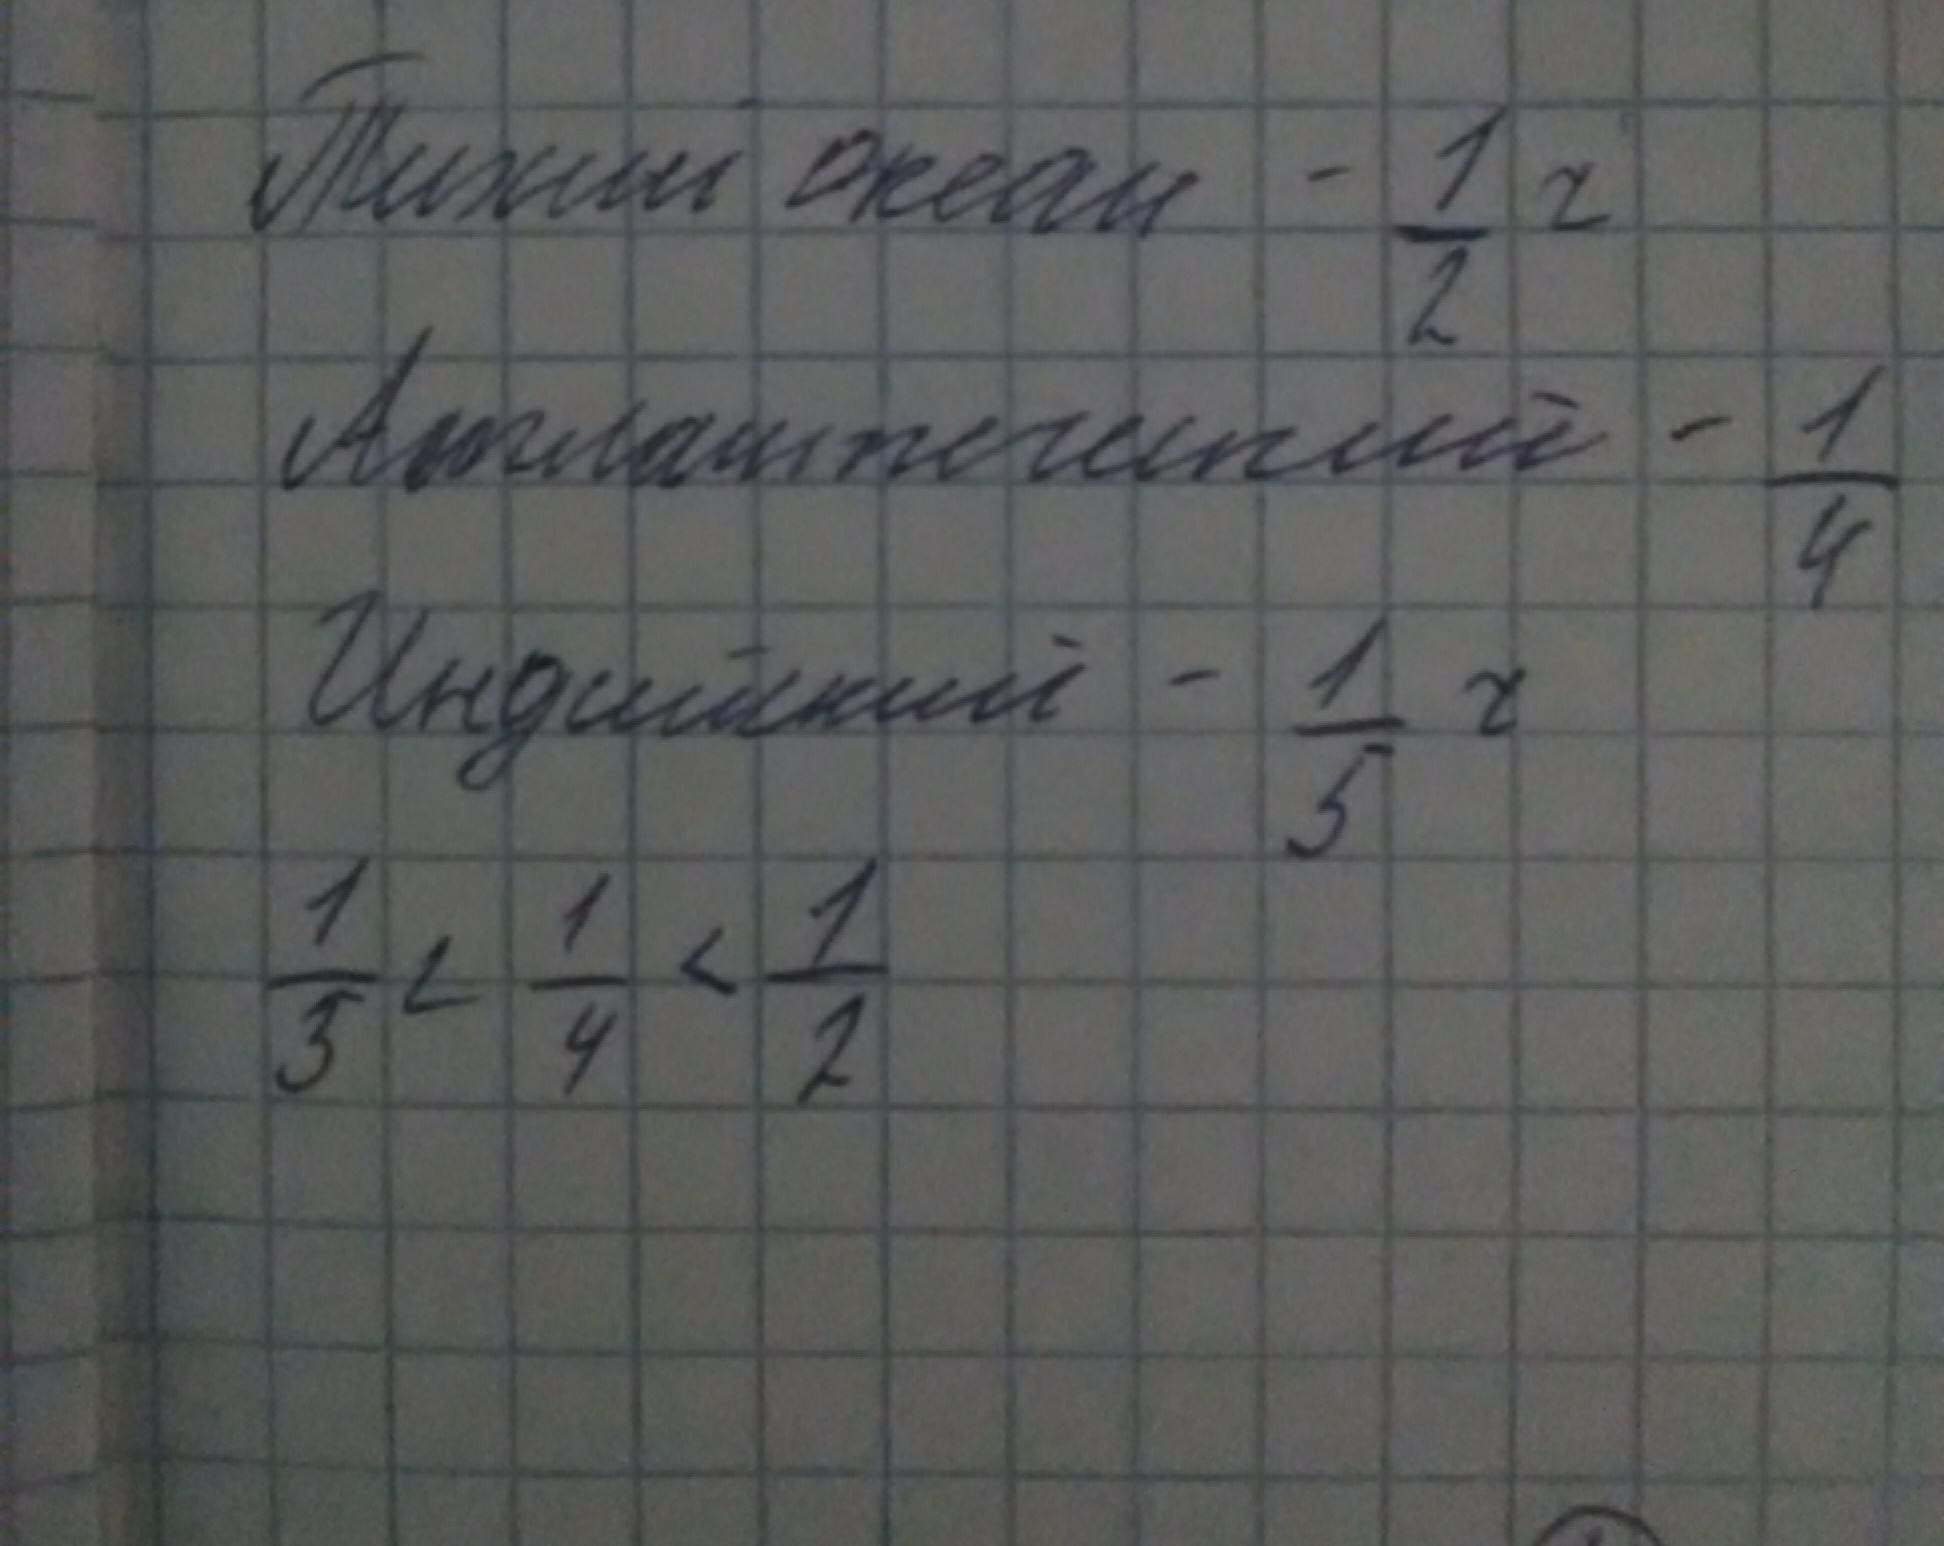 Тихий океан - 1/2 ч
Атлантический - 1/4
Индийский - 1/5 ч
1/5 < 1/4 < 1/2